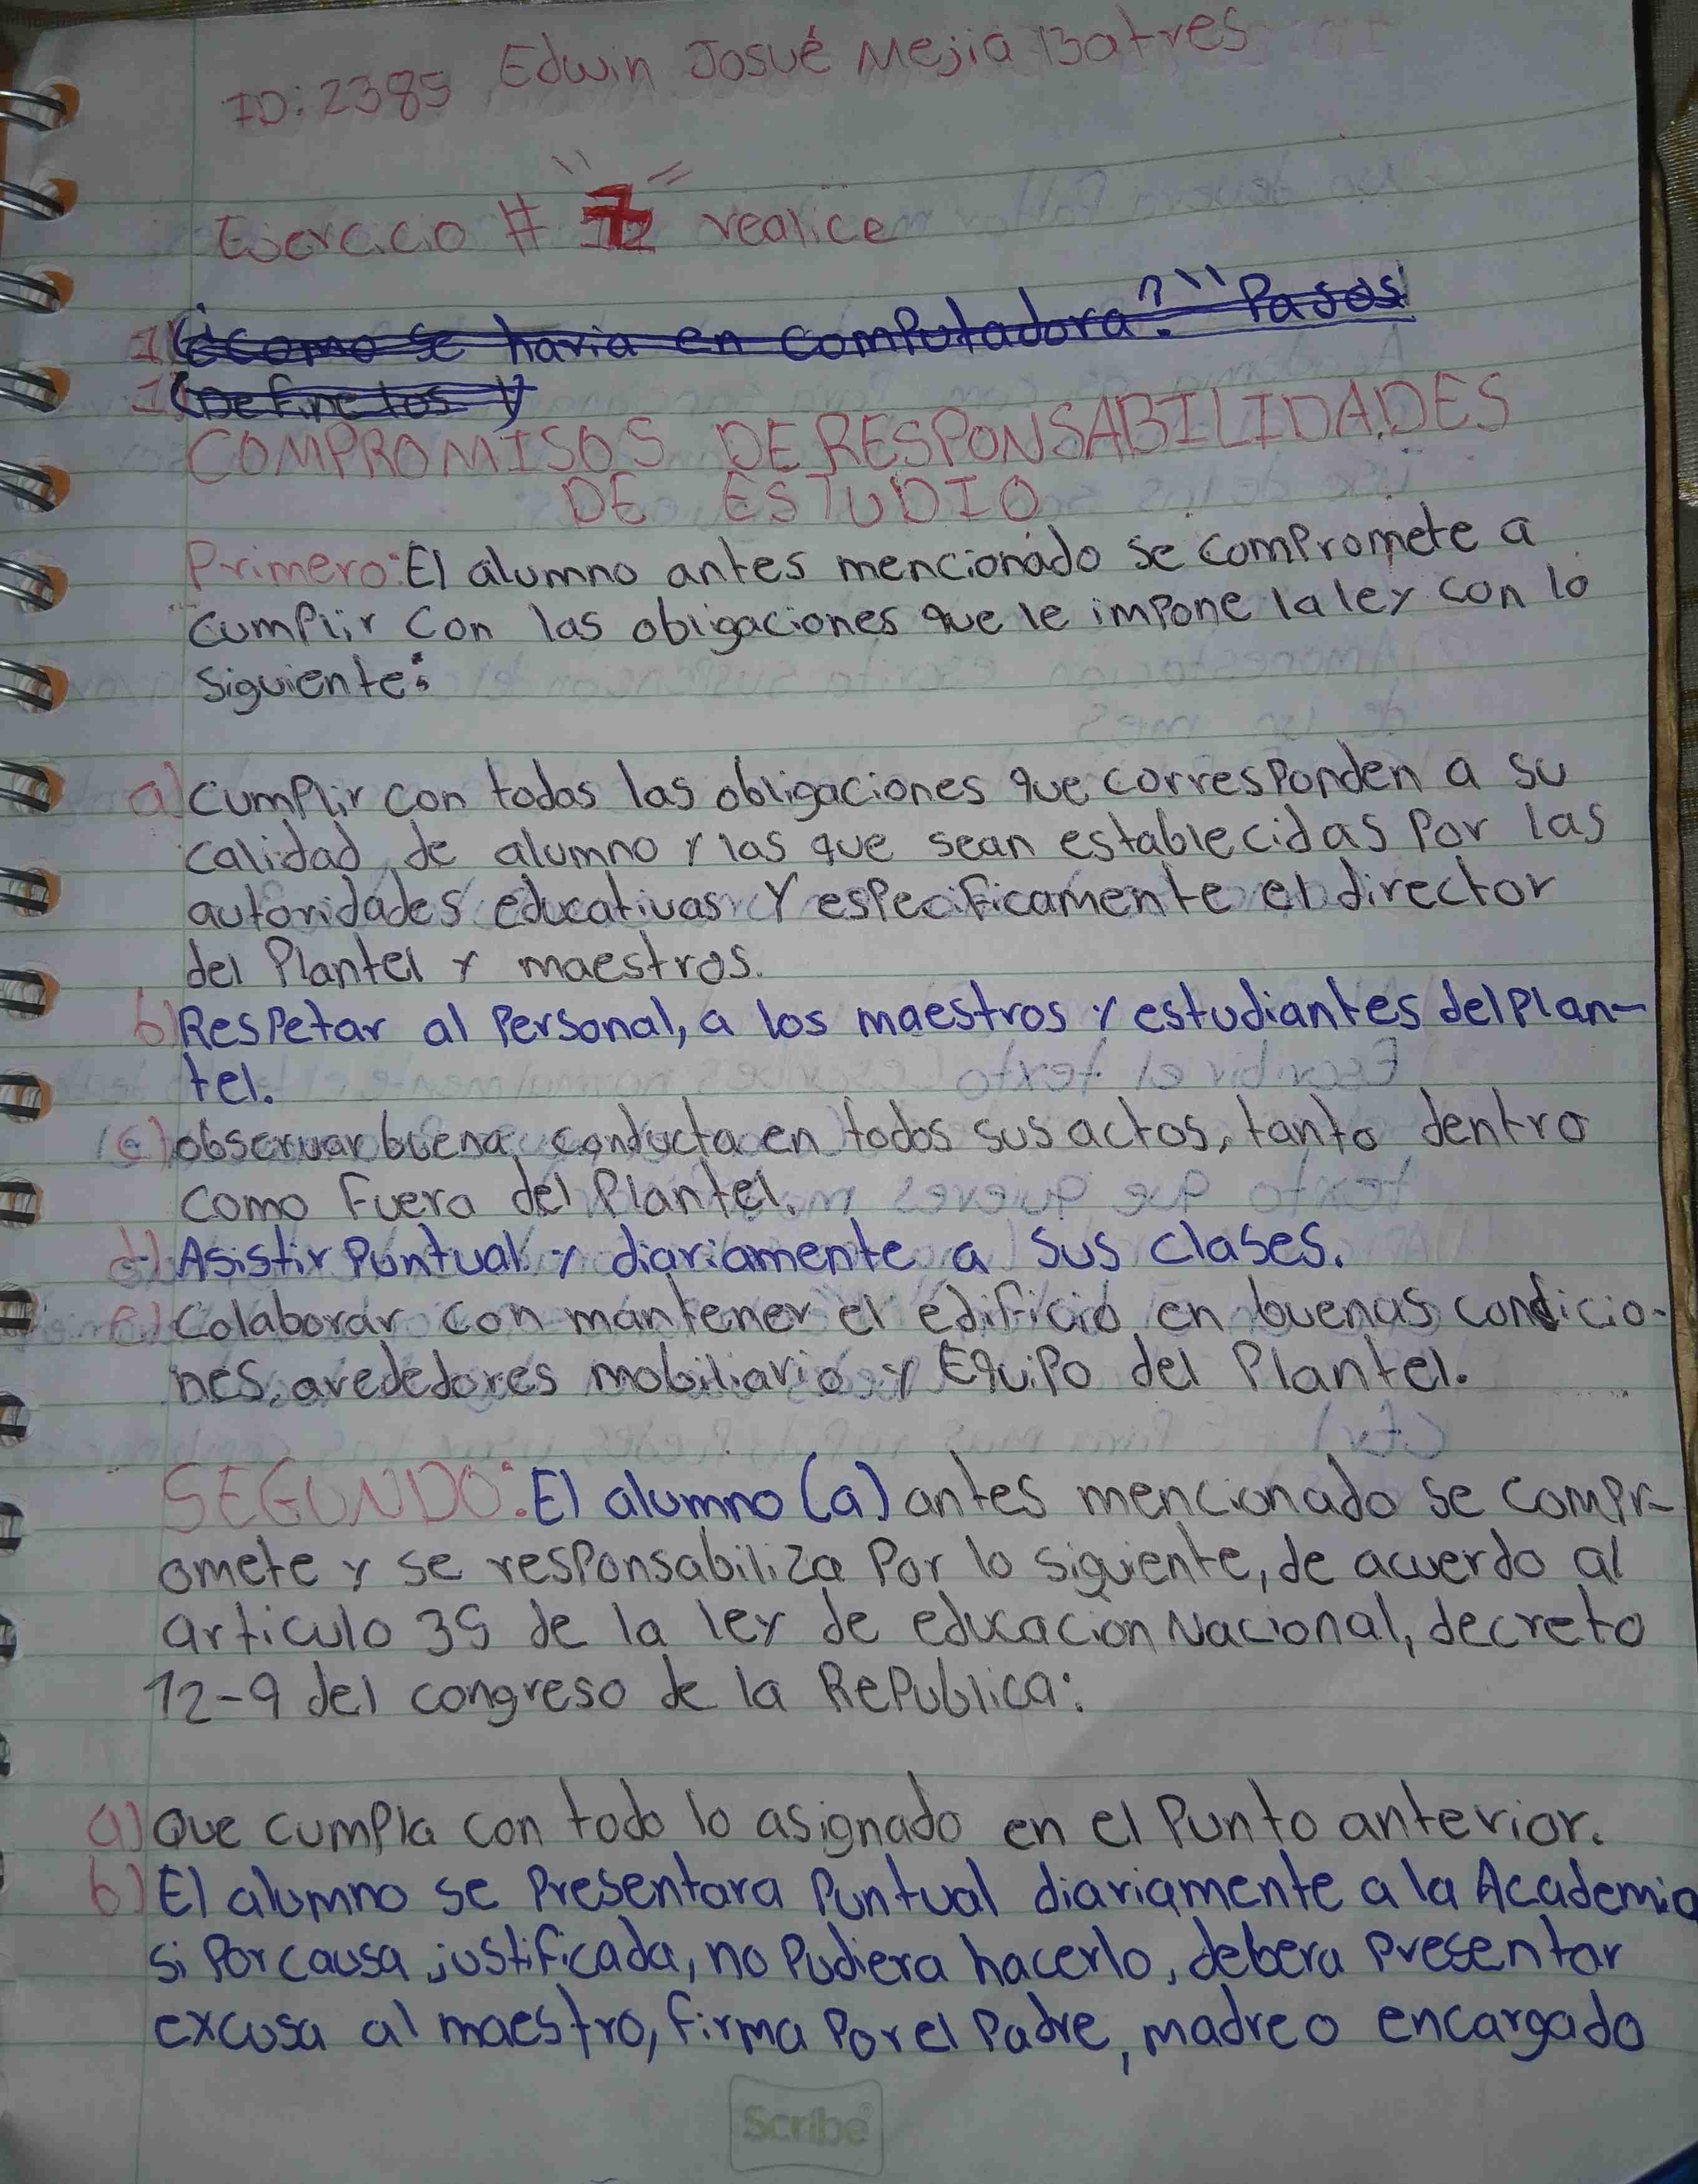 ID: 2385 Edwin Josué Mejia Batres
Ejercicio # "7" realice
1) ¿como se haria en computadora? " Pasos
1) Define los y
COMPROMISOS DE RESPONSABILIDADES
DE ESTUDIO
Primero: El alumno antes mencionado se compromete a
cumplir con las obligaciones que le impone la ley con lo
siguiente:
a) cumplir con todas las obligaciones que corresponden a su
calidad de alumno y las que sean establecidas por las
autoridades educativas y especificamente el director
del Plantel y maestros.
b) Respetar al personal, a los maestros y estudiantes del plan-
tel.
c) observar buena conducta en todos sus actos, tanto dentro
como fuera del Plantel.
d) Asistir puntual y diariamente a sus clases.
e) Colaborar con mantener el edificio en buenas condicio-
nes, arededores mobiliario y Equipo del Plantel.
SEGUNDO: El alumno (a) antes mencionado se compr-
omete y se responsabiliza por lo siguiente, de acuerdo al
articulo 35 de la ley de educacion Nacional, decreto
12-9 del congreso de la Republica:
a) Que cumpla con todo lo asignado en el punto anterior.
b) El alumno se presentara puntual diariamente a la Academia
si por causa justificada, no pudiera hacerlo, debera presentar
excusa al maestro, firma por el padre, madre o encargado
Scribe